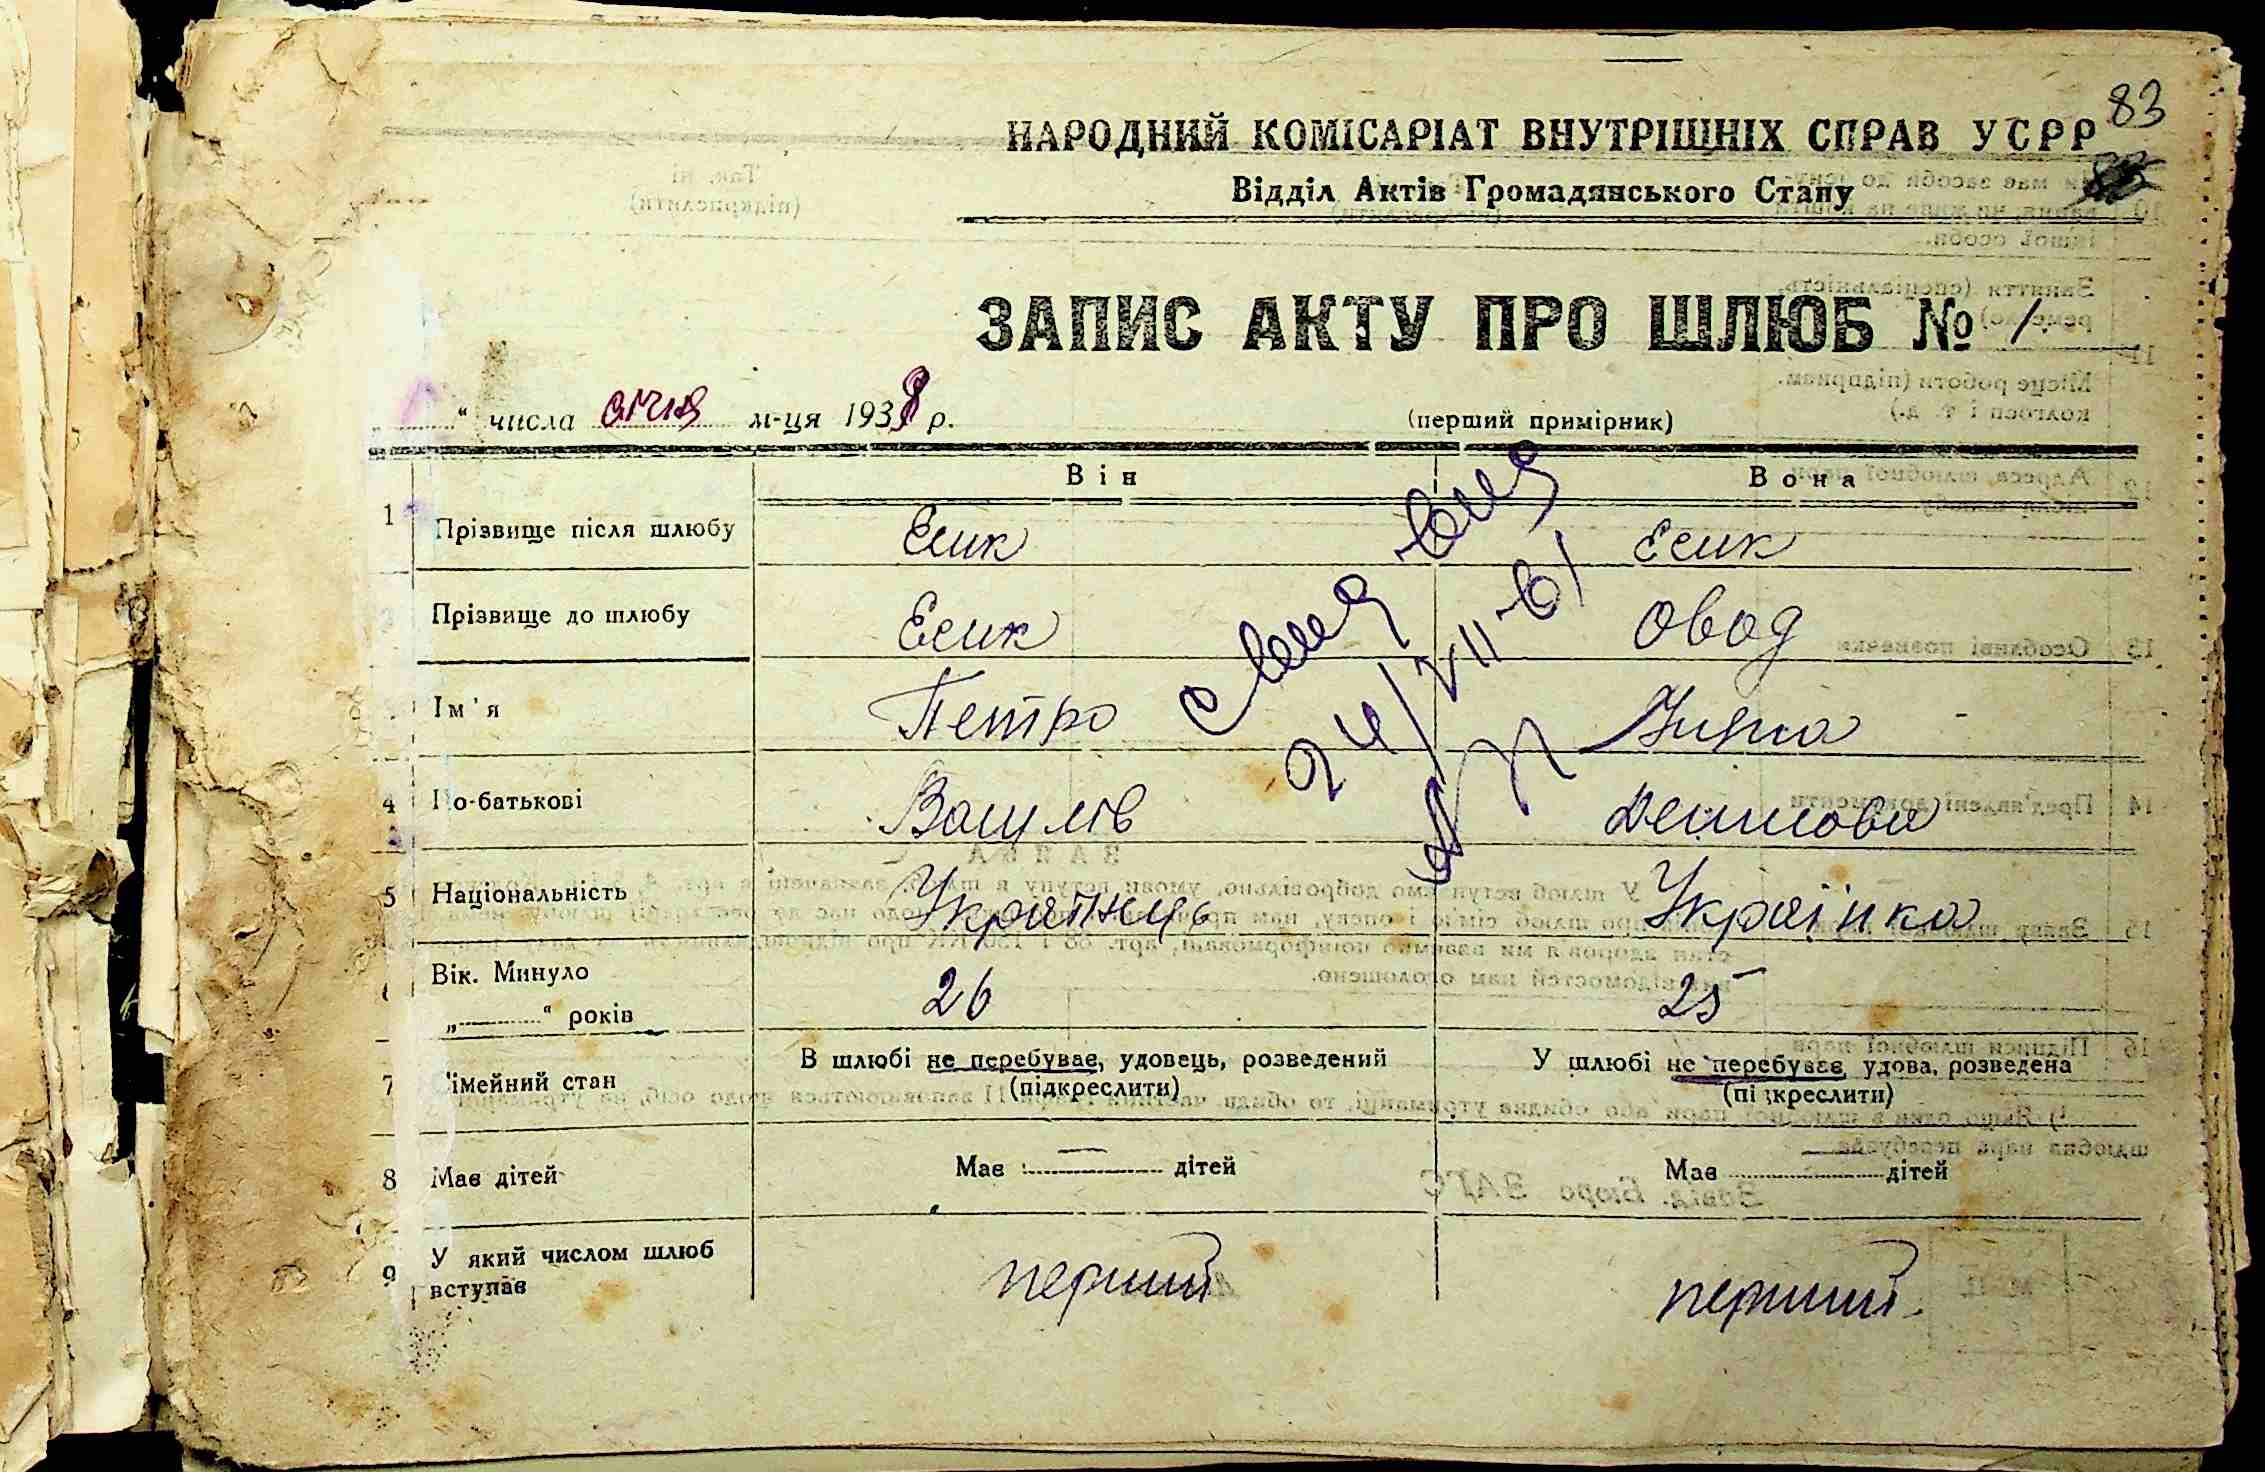 83
НАРОДНИЙ КОМІСАРІАТ ВНУТРІШНІХ СПРАВ УСРР
Відділ Актів Громадянського Стану
ЗАПИС АКТУ ПРО ШЛЮБ № 1
“ числа січня м-ця 1938 р.
(перший примірник)
Він Вона
1 Прізвище після шлюбу Есик Есик
Прізвище до шлюбу Есик Овод
Ім'я Петро
4 По-батькові Василів Денисова
5 Національність Українець Українка
Вік. Минуло
„ “ років 26 25
7 Сімейний стан В шлюбі не перебуває, удовець, розведений У шлюбі не перебуває, удова, розведена
(підкреслити) (підкреслити)
8 Має дітей Має — дітей Має — дітей
9 У який числом шлюб
вступав перший перший
24/VII-61